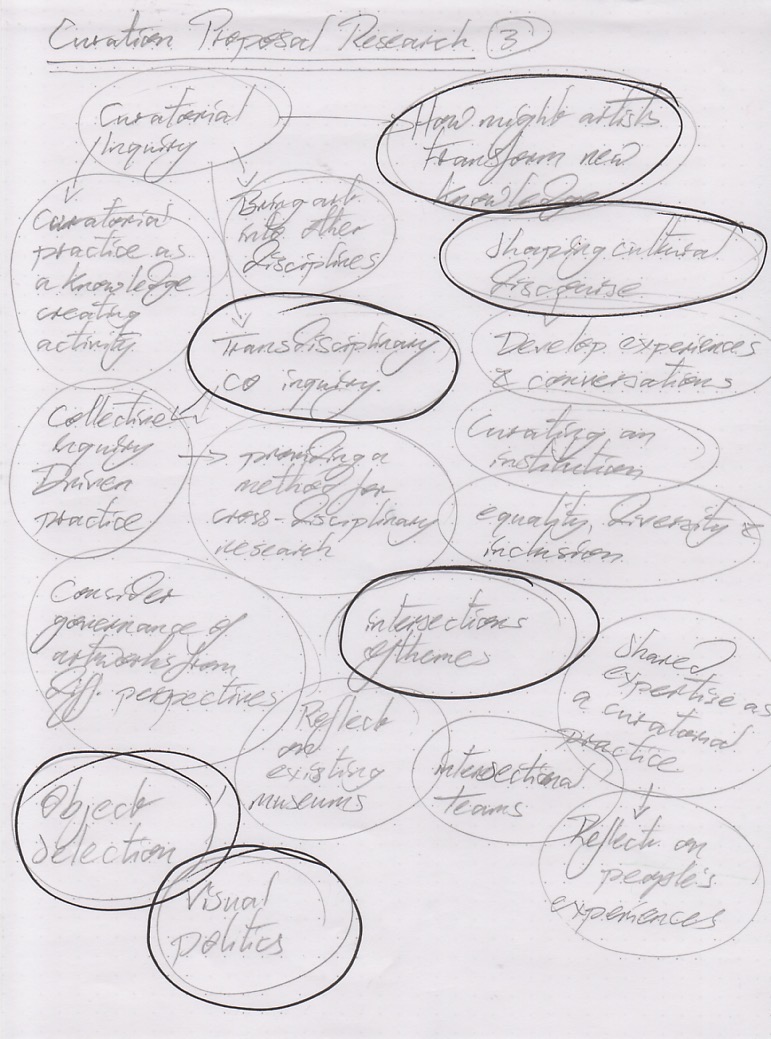 Curation Proposal Research 3
Curatorial
Inquiry
How might artists
transform new
knowledge
Curatorial
practice as
a knowledge
creating
activity
Bring art
into other
disciplines
Shaping cultural
discourse
Transdisciplinary
co inquiry.
Develop experiences
& conversations
Collective
inquiry
Driven
practice
providing a
method for
cross-disciplinary
research
Curating an
institution
equality, diversity &
inclusion
Consider
governance of
artworks from
diff. perspectives
intersections
of themes
Shared
expertise as
a curatorial
practice
Reflect
on
existing
museums
intersectional
teams
Object
selection
Reflect on
people's
experiences
Visual
politics